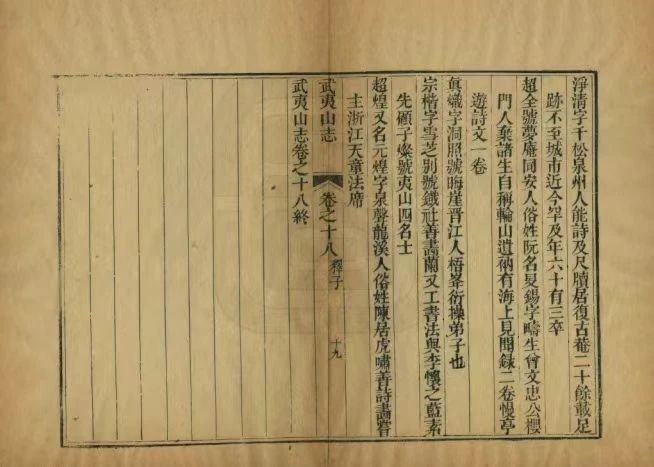 淨清字千松泉州人能詩及尺牘居復古菴二十餘載足
跡不至城市近今罕及年六十有三卒
超全號夢庵同安人俗姓阮名旻錫字疇生曾文忠公櫻
門人棄諸生自稱輪山遺衲有海上見聞錄二卷幔亭
遊詩文一卷
眞熾字洞照號晦崖晋江人梧峯衍操弟子也
宗楷字雪芝別號鐵社善畵蘭又工書法與李懷之藍素
先顧子燦號夷山四名士
超煌又名元煌字泉聲龍溪人俗姓陳居虎嘯善詩畵嘗
主浙江天童法席
武夷山志
卷之十八
釋子
十九
武夷山志卷之十八終